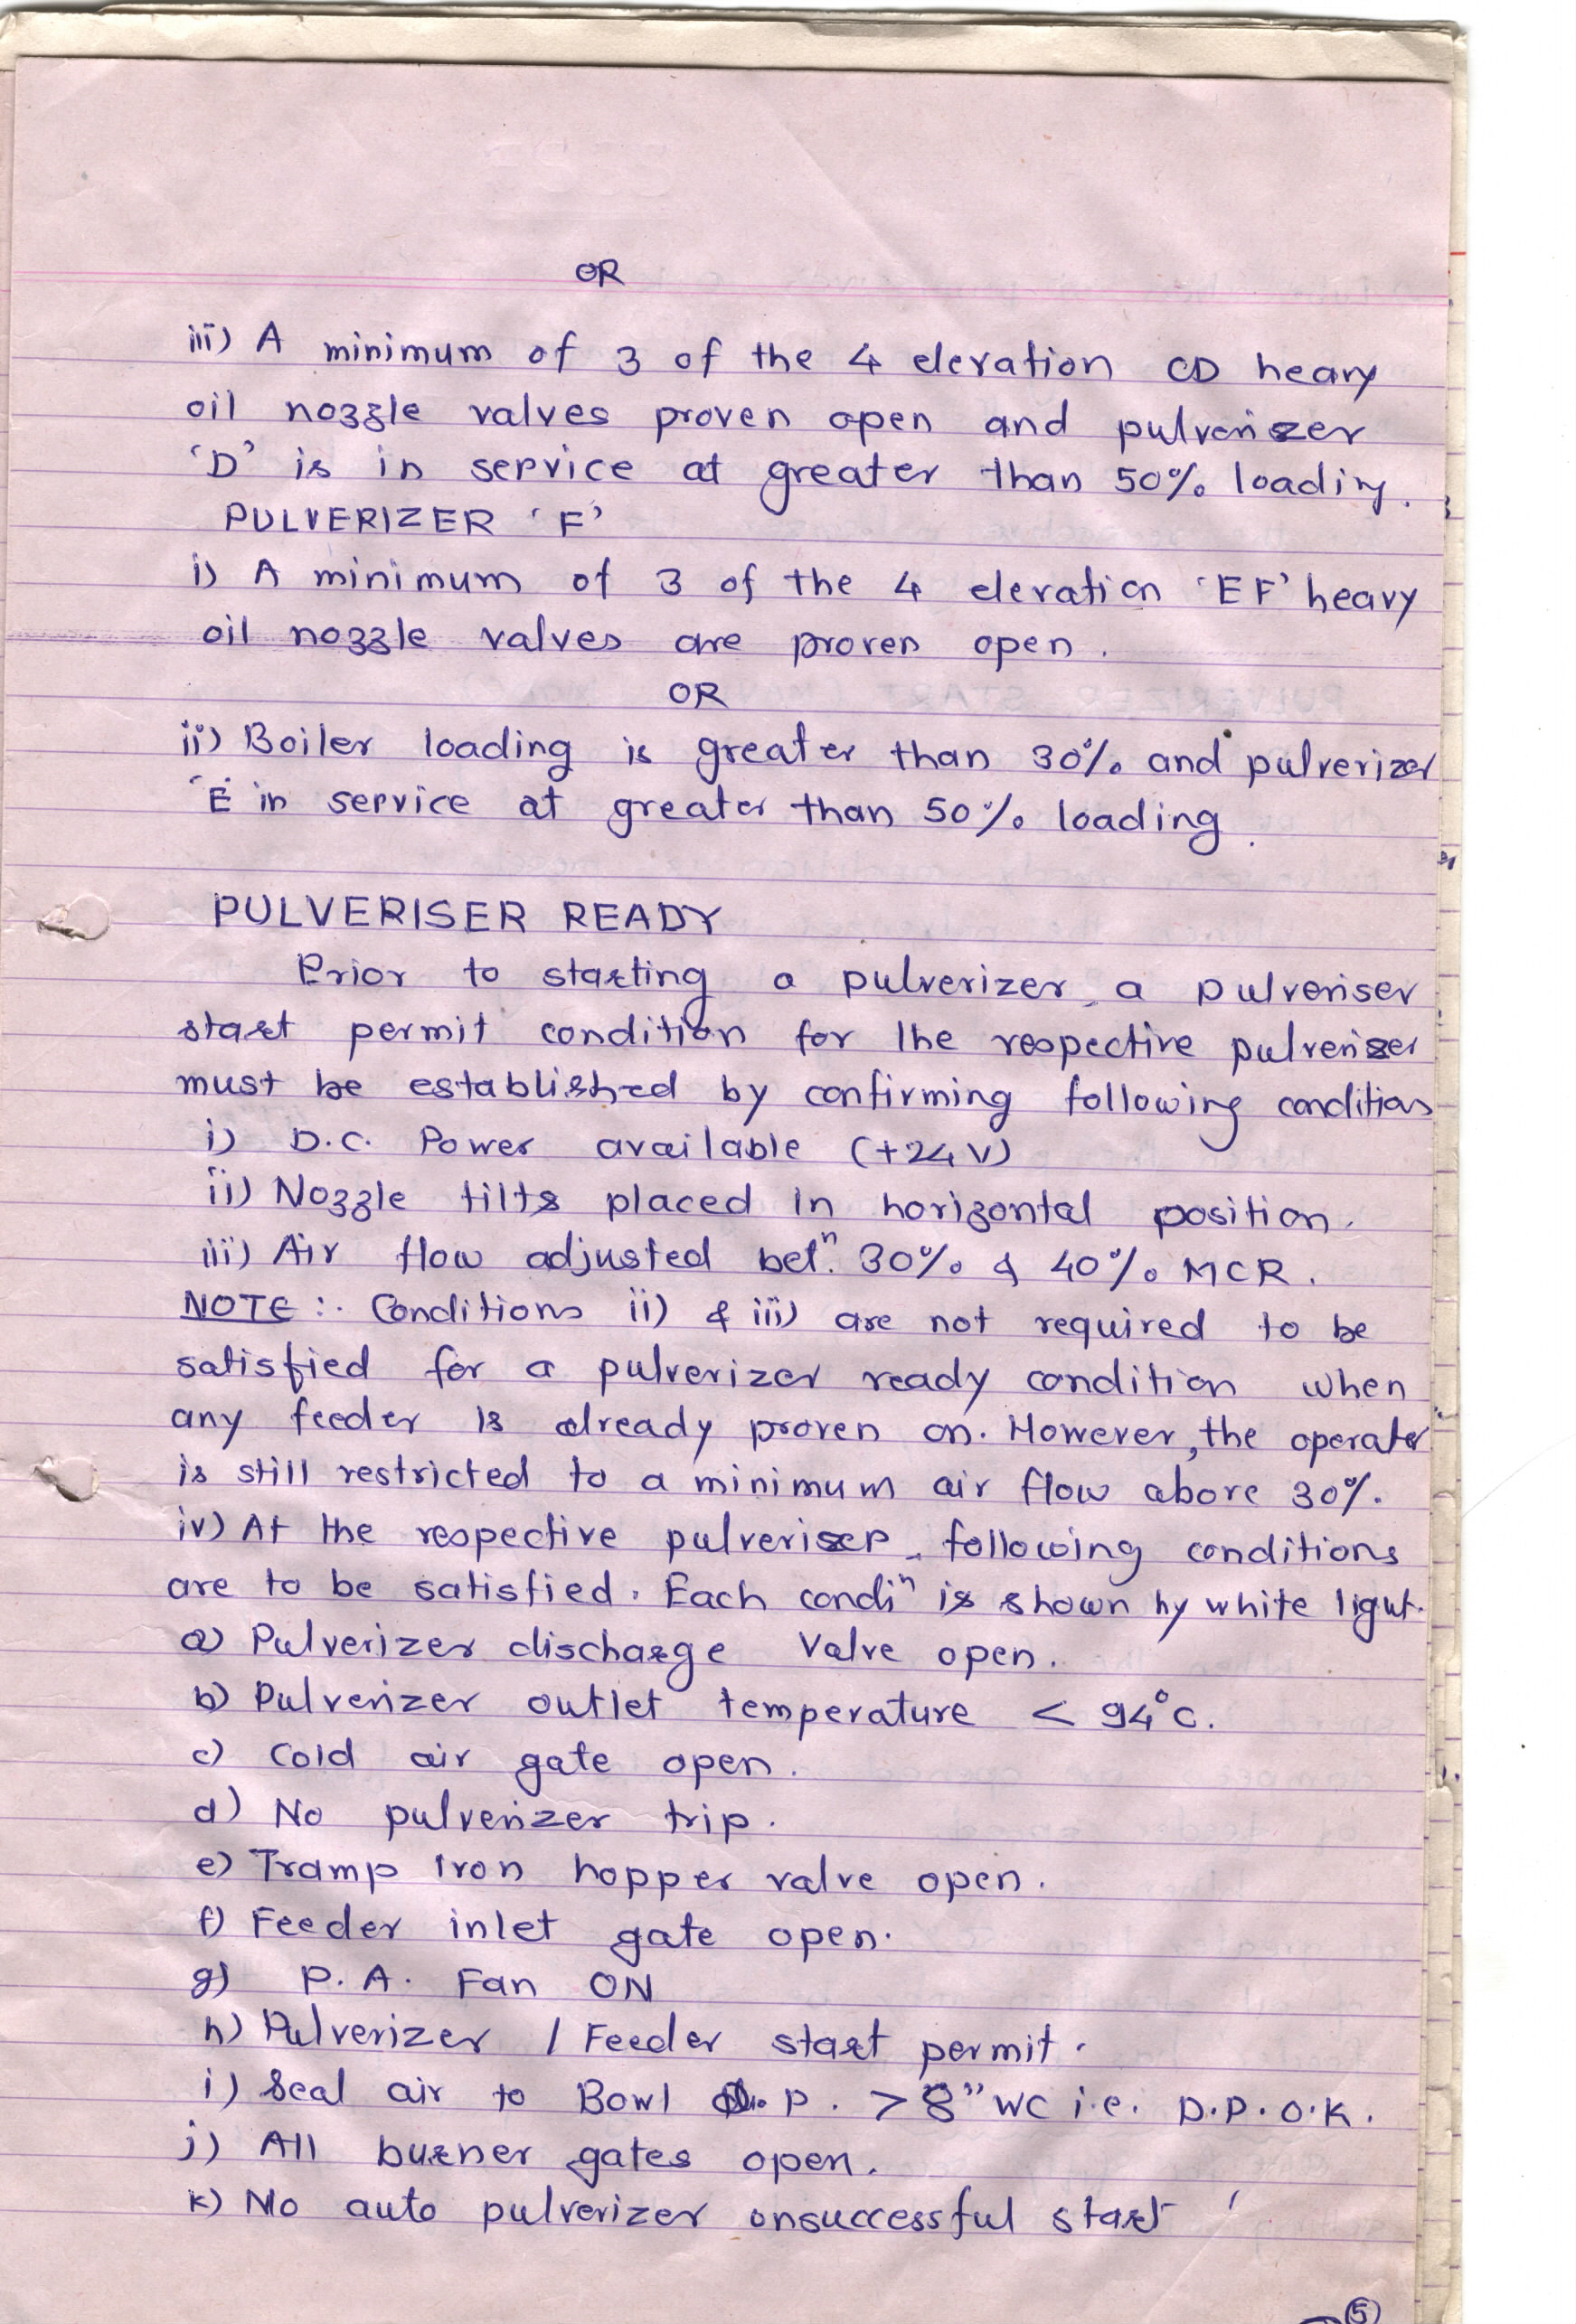 OR
iii) A minimum of 3 of the 4 elevation CD heavy
oil nozzle valves proven open and pulverizer
'D' is in service at greater than 50% loading.
PULVERIZER 'F'
i) A minimum of 3 of the 4 elevation 'EF' heavy
oil nozzle valves are proven open.
OR
ii) Boiler loading is greater than 30% and pulverizer
'E' in service at greater than 50% loading.
PULVERISER READY
Prior to starting a pulverizer, a pulveriser
start permit condition for the respective pulveriser
must be established by confirming following conditions
i) D.C. Power available (+24V)
ii) Nozzle tilts placed in horizontal position.
iii) Air flow adjusted betn. 30% & 40% MCR.
NOTE :. Conditions ii) & iii) are not required to be
satisfied for a pulverizer ready condition when
any feeder is already proven on. However, the operator
is still restricted to a minimum air flow above 30%.
iv) At the respective pulveriser, following conditions
are to be satisfied. Each condin is shown by white light.
a) Pulverizer discharge Valve open.
b) Pulverizer outlet temperature < 94°c.
c) Cold air gate open.
d) No pulverizer trip.
e) Tramp Iron hopper valve open.
f) Feeder inlet gate open.
g) P.A. Fan ON
h) Pulverizer / Feeder start permit.
i) Seal air to Bowl D.P. > 8" WC i.e. D.P.O.K.
j) All burner gates open.
k) No auto pulverizer unsuccessful start
5